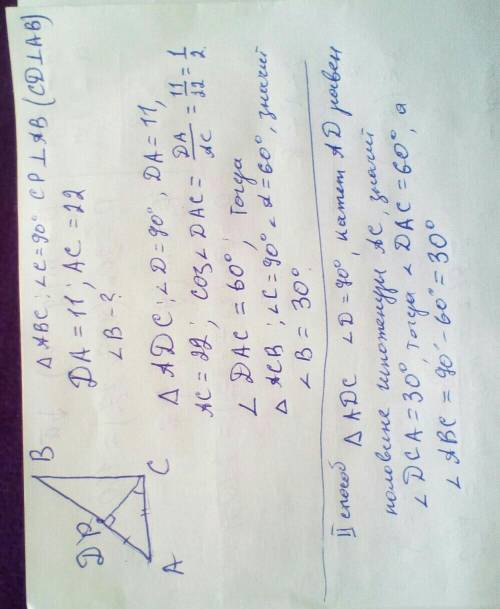 B
D P
C
A
△ ABC; ∠C=90° CP⊥AB (CD⊥AB)
DA=11; AC=22
∠B-?
△ ADC; ∠D=90°, DA=11,
AC=22; cos∠DAC = DA/AC = 11/22 = 1/2
∠DAC = 60°, Тогда
△ ACB; ∠C=90° ∠A=60°, значит
∠B = 30°
II способ △ADC ∠D=90°, катет AD равен
половине гипотенузы AC, значит
∠DCA=30°, тогда ∠DAC=60°, а
∠ABC = 90°-60°=30°